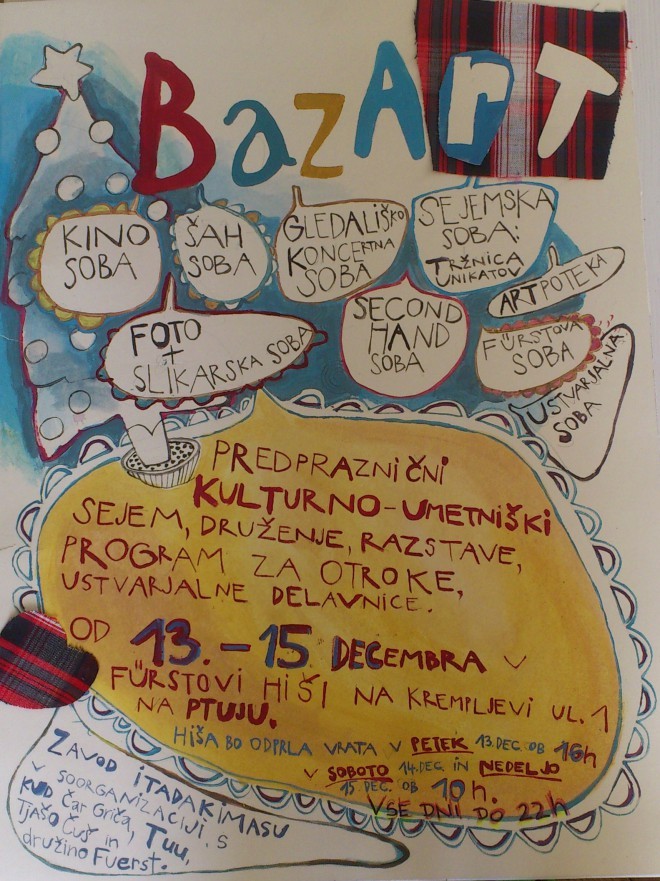 BazArT
KINO
SOBA
ŠAH
SOBA
GLEDALIŠKO
KONCERTNA
SOBA
SEJEMSKA
SOBA:
TRŽNICA
UNIKATOV
ARTPOTEKA
FOTO
+
SLIKARSKA SOBA
SECOND
HAND
SOBA
FÜRSTOVA
SOBA
USTVARJALNA
SOBA
PREDPRAZNIČNI
KULTURNO-UMETNIŠKI
SEJEM, DRUŽENJE, RAZSTAVE,
PROGRAM ZA OTROKE,
USTVARJALNE DELAVNICE.
OD 13.-15 DECEMBRA V
FÜRSTOVI HIŠI NA KREMPLJEVI UL. 1
NA PTUJU.
HIŠA BO ODPRLA VRATA V PETEK 13.DEC. OB 16h
V SOBOTO 14.DEC. IN NEDELJO
15. DEC. OB 10h.
VSE DNI DO 22h
ZAVOD ITADAKIMASU
V SOORGANIZACIJI S
KUD Čar Griča, Tuu,
Tjašo Čuš in
družino Fuerst.